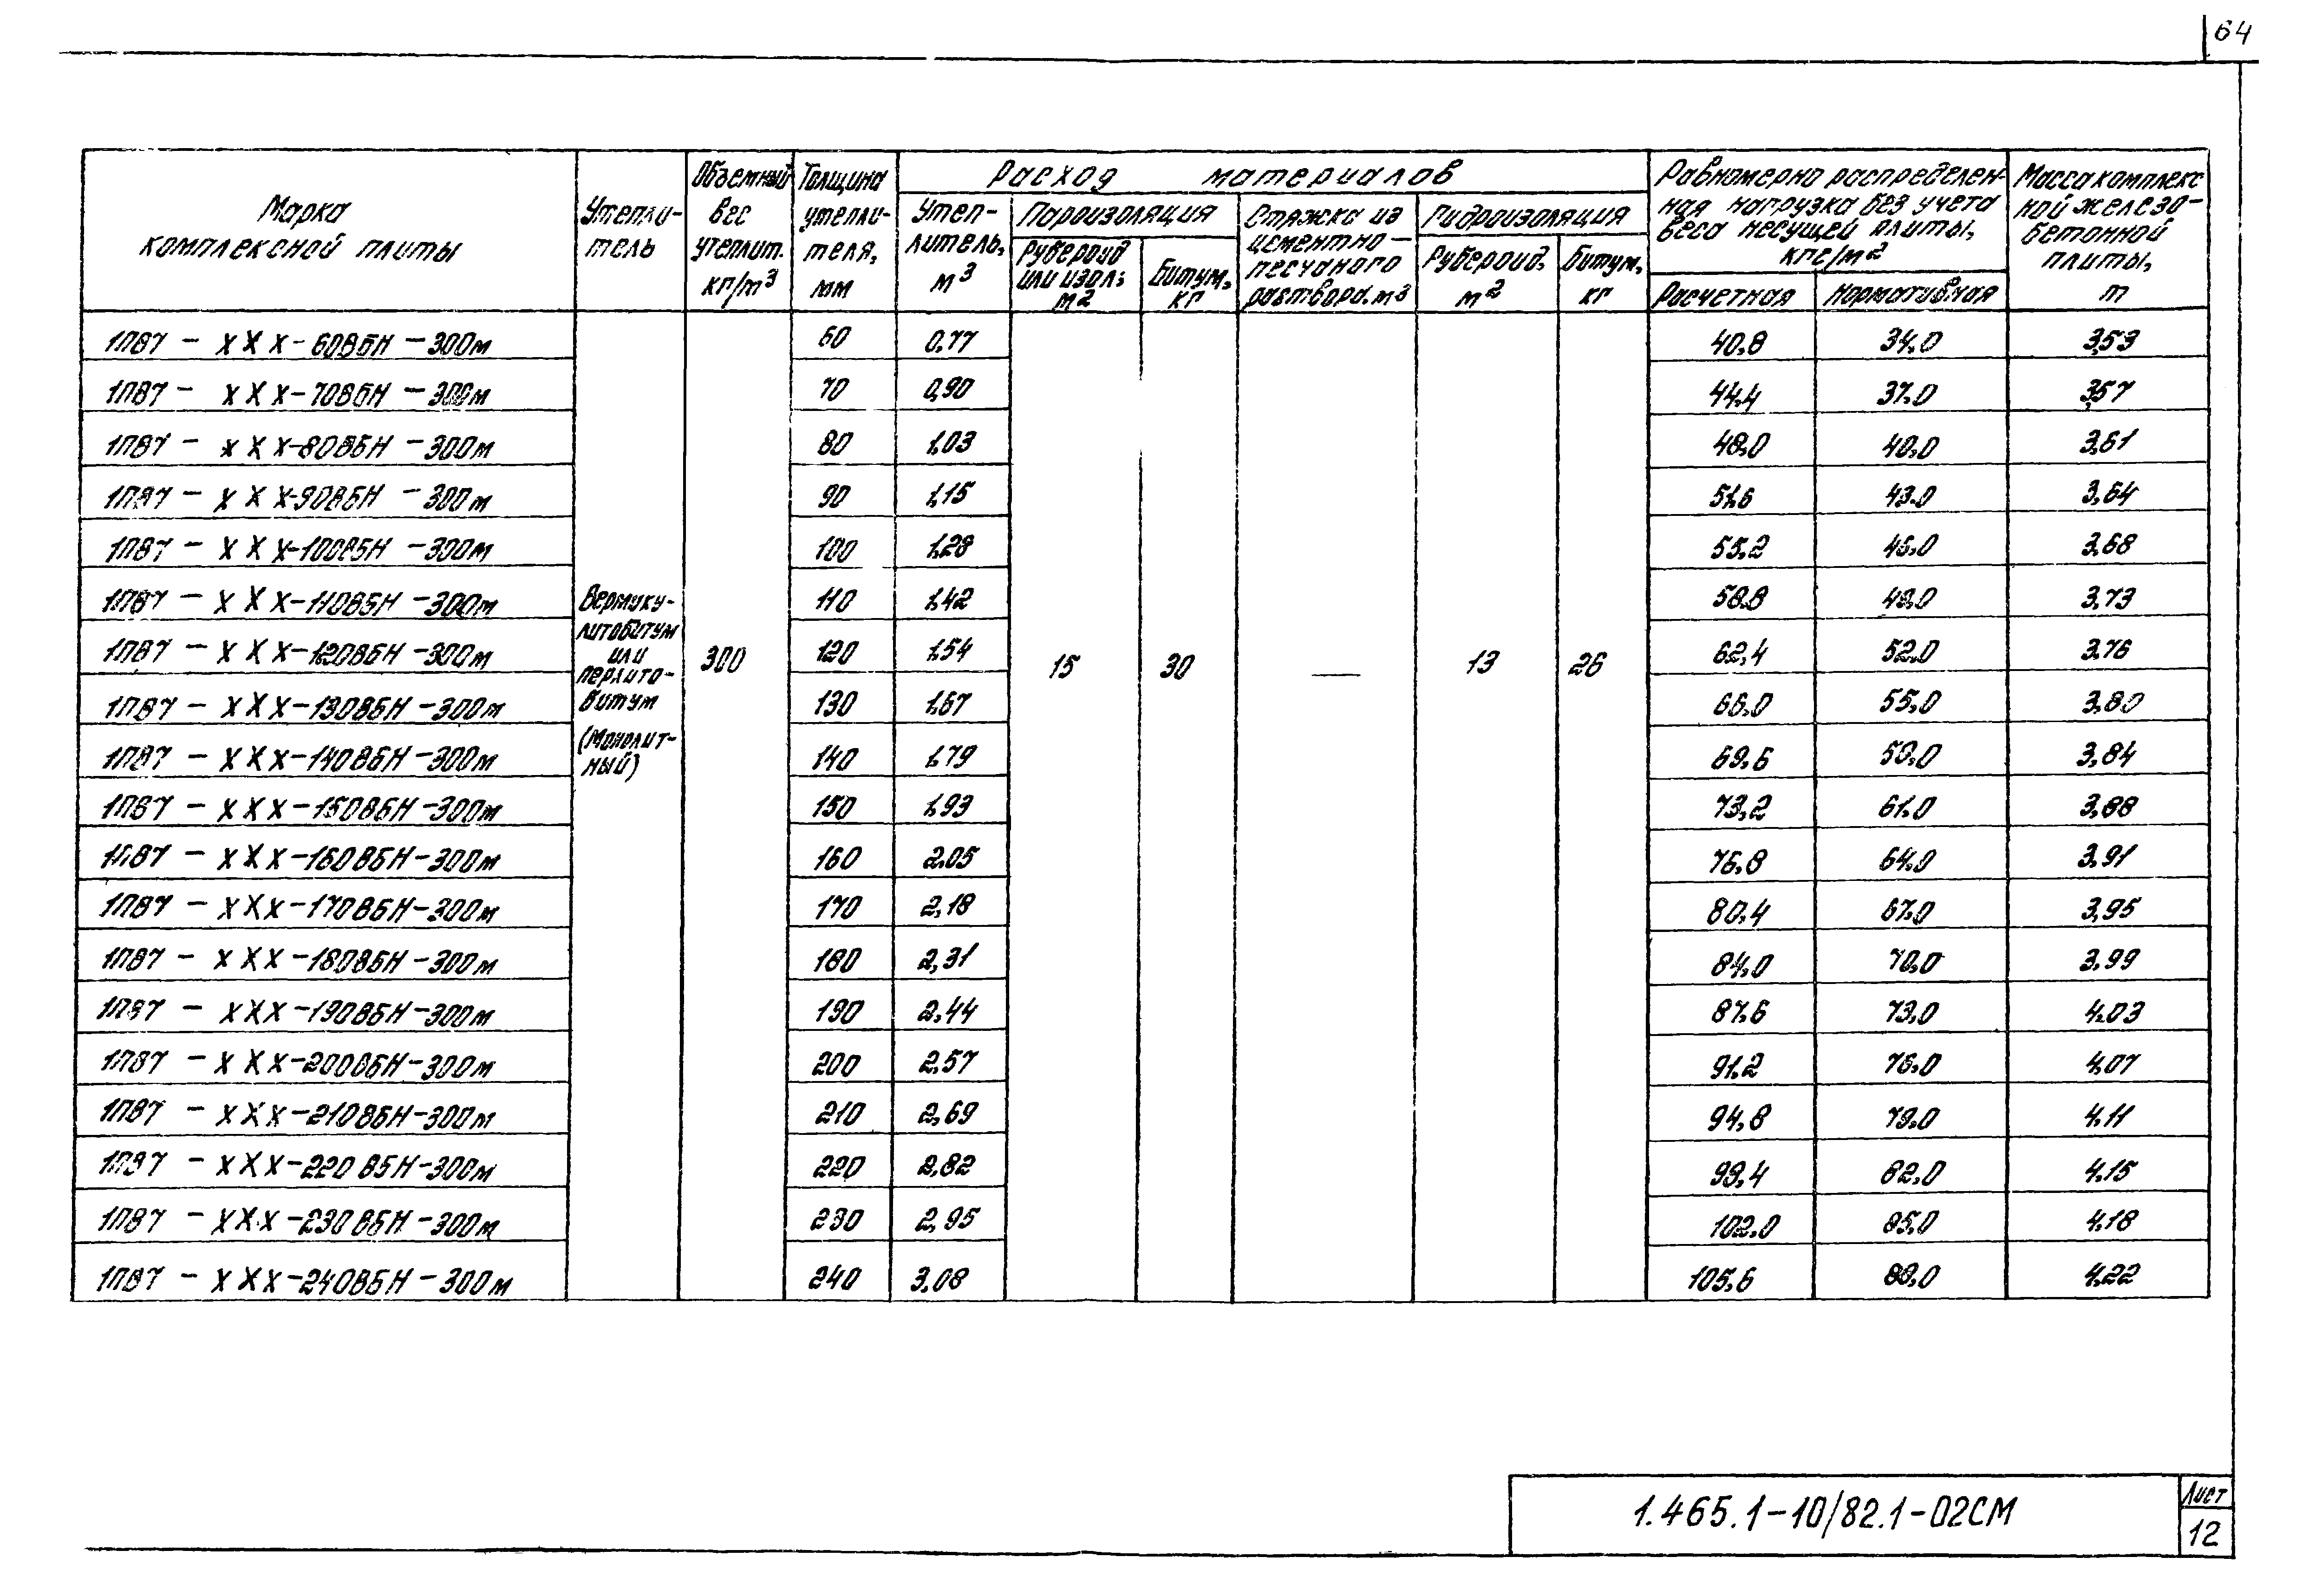 64
Марка комплексной плиты
Утепли-тель
Объемный вес утеплит. кг/м³
Толщина утепли-теля, мм
Расход материалов
Утеп-литель, м³
Пароизоляция
Рубероид или изол, м²
Битум, кг
Стяжка из цементно-песчаного раствора, м³
Гидроизоляция
Рубероид, м²
Битум, кг
Равномерно распределен-ная нагрузка без учета веса несущей плиты, кгс/м²
Расчетная
Нормативная
Масса комплекс ной железо-бетонной плиты, т
1П87 - ХХХ-60ВБН-300м 60 0,77 40,8 34,0 3,53
1П87 - ХХХ-70ВБН-300м 70 0,90 44,4 37,0 3,57
1П87 - ХХХ-80ВБН-300м 80 1,03 48,0 40,0 3,61
1П87 - ХХХ-90ВБН-300м 90 1,15 51,6 43,0 3,64
1П87 - ХХХ-100ВБН-300м 100 1,28 55,2 46,0 3,68
1П87 - ХХХ-110ВБН-300м 110 1,42 58,8 49,0 3,73
1П87 - ХХХ-120ВБН-300м 120 1,54 62,4 52,0 3,76
1П87 - ХХХ-130ВБН-300м 130 1,67 66,0 55,0 3,80
1П87 - ХХХ-140ВБН-300м 140 1,79 69,6 58,0 3,84
1П87 - ХХХ-150ВБН-300м 150 1,93 73,2 61,0 3,88
1П87 - ХХХ-160ВБН-300м 160 2,05 76,8 64,0 3,91
1П87 - ХХХ-170ВБН-300м 170 2,18 80,4 67,0 3,95
1П87 - ХХХ-180ВБН-300м 180 2,31 84,0 70,0 3,99
1П87 - ХХХ-190ВБН-300м 190 2,44 87,6 73,0 4,03
1П87 - ХХХ-200ВБН-300м 200 2,57 91,2 76,0 4,07
1П87 - ХХХ-210ВБН-300м 210 2,69 94,8 79,0 4,11
1П87 - ХХХ-220ВБН-300м 220 2,82 98,4 82,0 4,15
1П87 - ХХХ-230ВБН-300м 230 2,95 102,0 85,0 4,18
1П87 - ХХХ-240ВБН-300м 240 3,08 105,6 88,0 4,22
Вермику-
литобитум
или
перлито-
битум
(Монолит-
ный)
300 15 30 — 13 26
1.465.1-10/82.1-02СМ
Лист
12